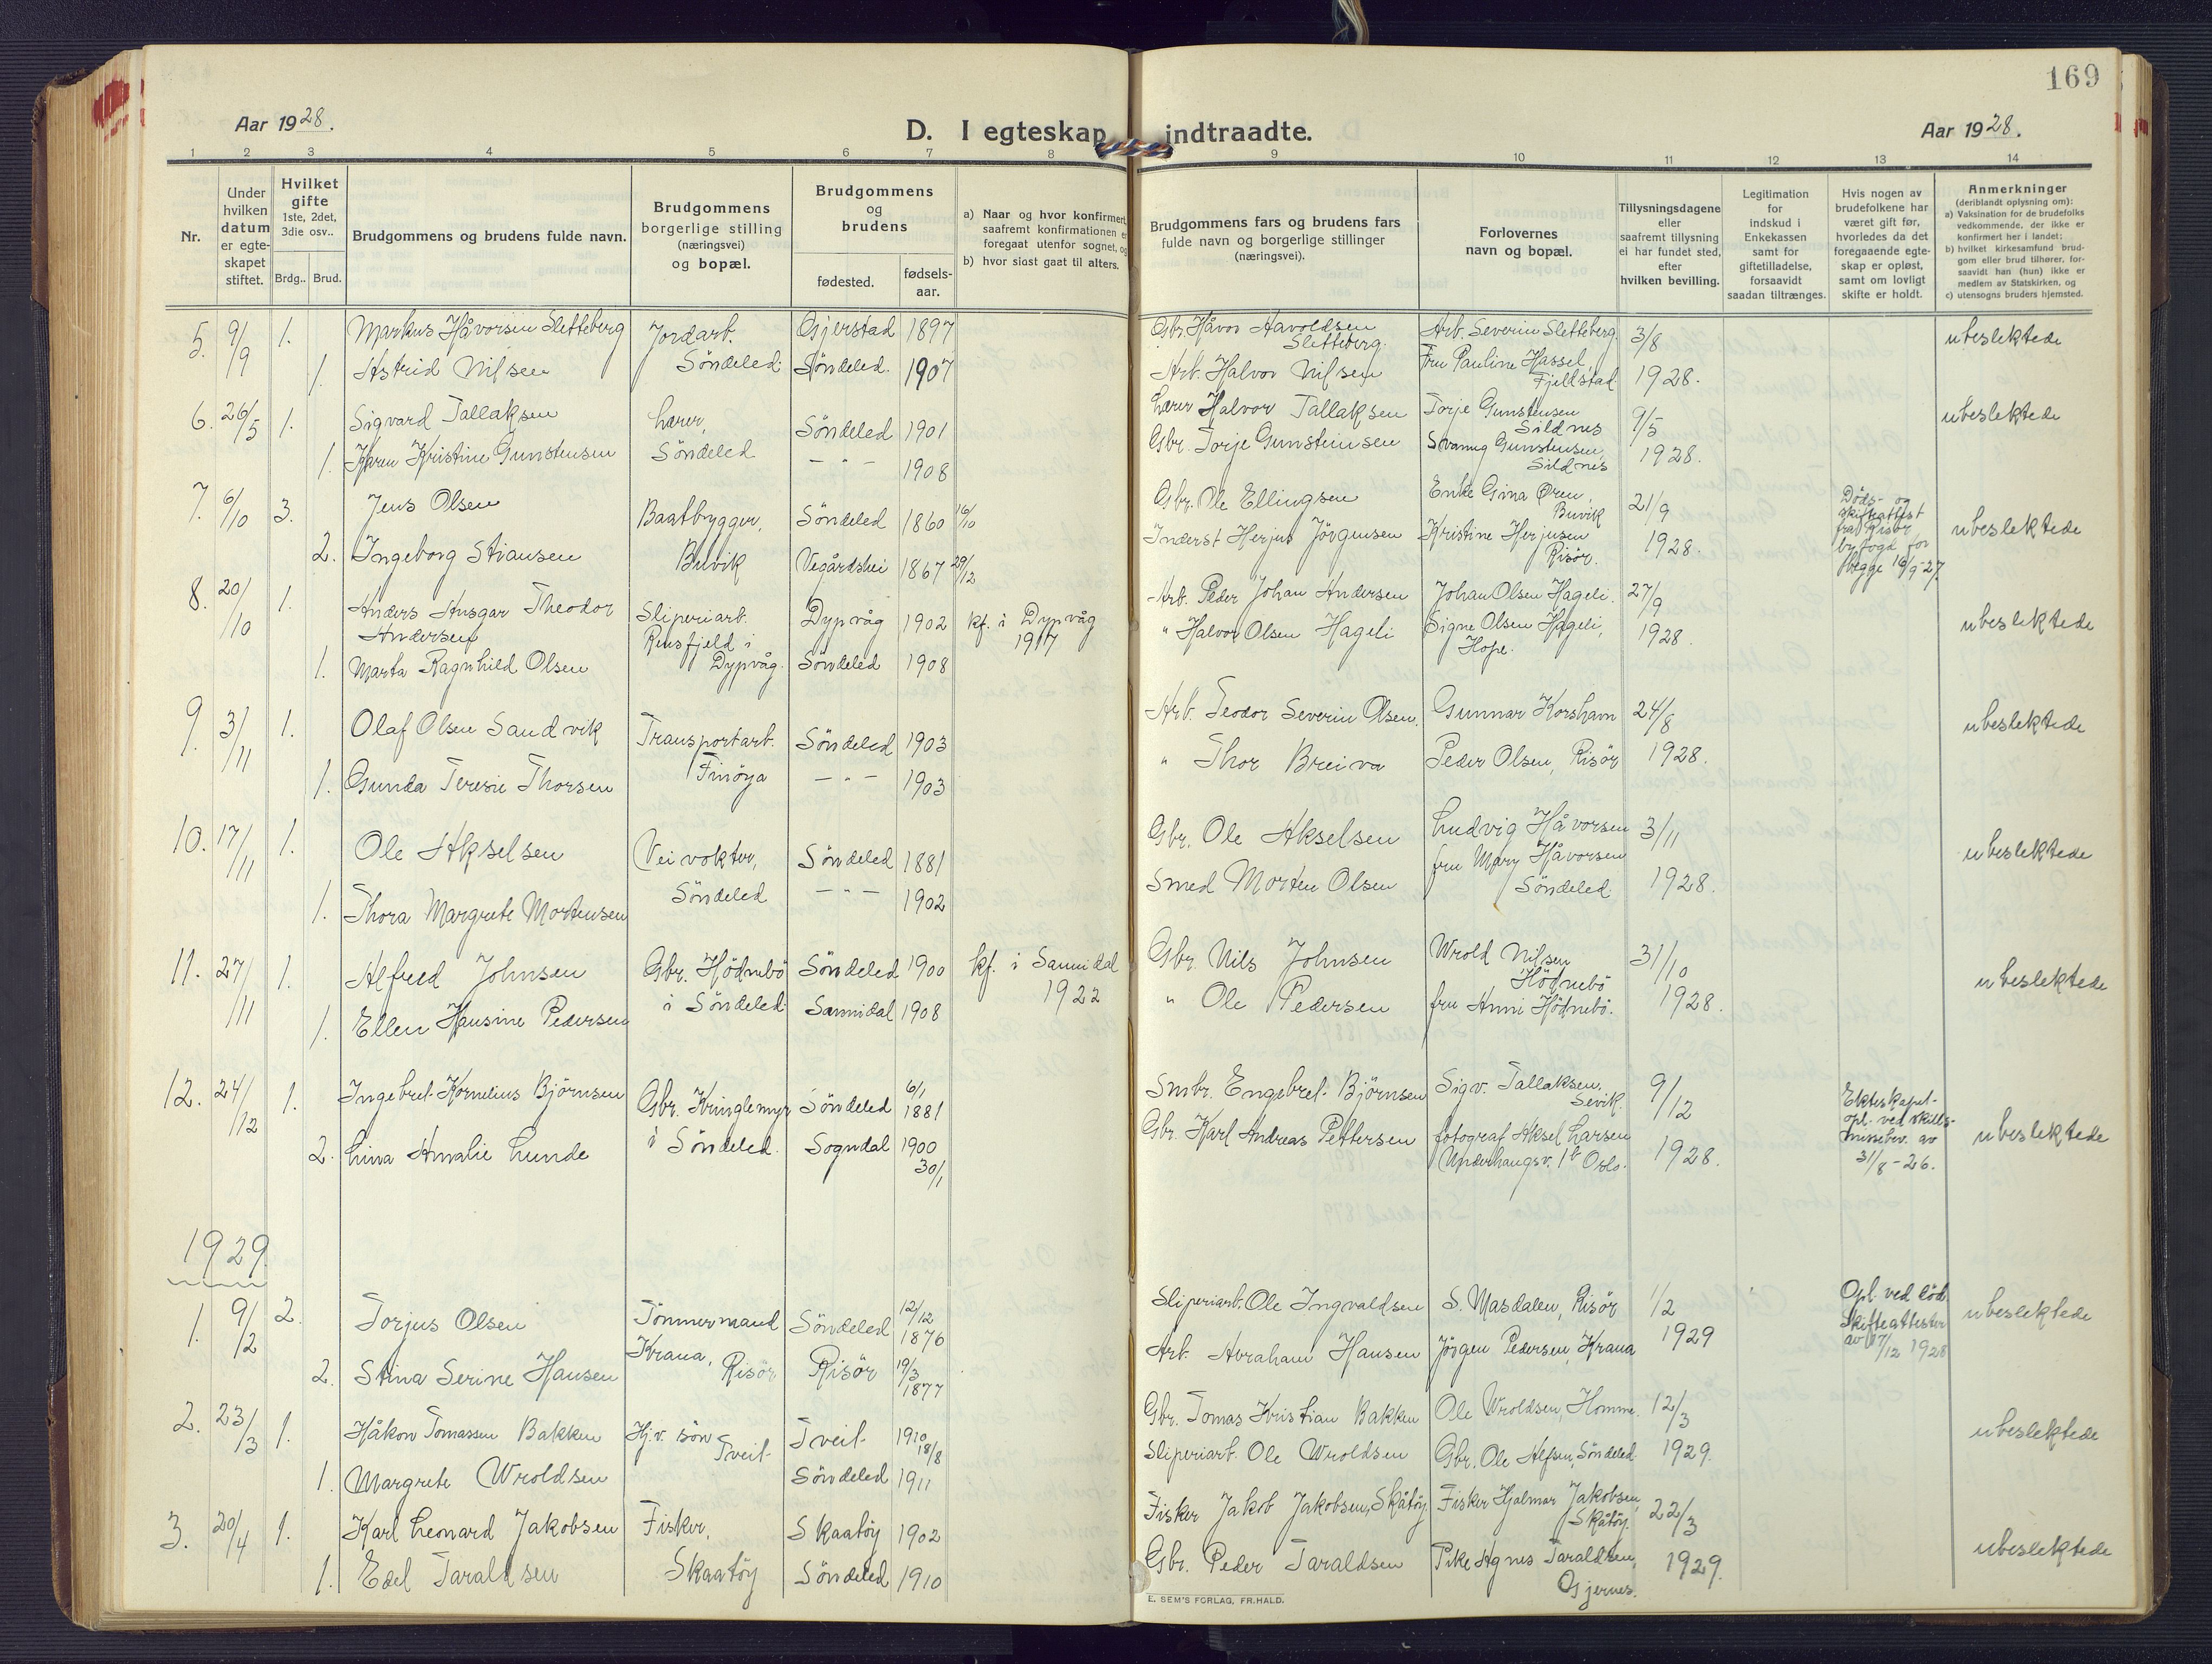 169
Aar 1928.
D. I egteskap indtraadte.
Aar 1928.
1 2 3 4 5 6 7 8 9 10 11 12 13 14
Nr.
Under hvilken datum er egteskapet stiftet.
Hvilket gifte
1ste, 2det, 3die osv..
Brdg.. Brud.
Brudgommens og brudens fulde navn.
Brudgommens borgerlige stilling (næringsvei) og bopæl.
Brudgommens og brudens
fødested.
fødselsaar.
a) Naar og hvor konfirmert,
saafremt konfirmationen er
foregaat utenfor sognet, og
b) hvor sidst gaat til alters.
Brudgommens fars og brudens fars
fulde navn og borgerlige stillinger
(næringsvei).
Forlovernes
navn og bopæl.
Tillysningsdagene
eller
saafremt tillysning
ei har fundet sted,
efter
hvilken bevilling.
Legitimation
for
indskud i
Enkekassen
samt for
giftetilladelse,
forsaavidt
saadan tiltrænges.
Hvis nogen av
brudefolkene har
været gift før,
hvorledes da det
foregaaende egte-
skap er opløst,
samt om lovligt
skifte er holdt.
Anmerkninger
(deriblandt oplysning om):
a) Vaksination for de brudefolks
vedkommende, der ikke er
konfirmert her i landet;
b) hvilket kirkesamfund brud-
gom eller brud tilhører, for-
saavidt han (hun) ikke er
medlem av Statskirken, og
c) utensogns bruders hjemsted.
5. 9/9 1. Markus Håvorsen Sletteberg Jordarb. Gjerstad 1897 Gbr. Håvor Aavoldsen Sletteberg. Arb. Severin Sletteberg. 3/8 ubeslektede
1. Astrid Nilsen Söndeled. Söndeled. 1907 Arb. Halvor Nilsen Fru Pauline Hassel, Fjeldstad 1928.
6. 26/5 1. Sigvard Tallaksen Lærer, Söndeled 1901 Lærer Halvor Tallaksen Torje Gunstensen Sildnes 9/5 ubeslektede
1. Karen Kristine Gunstensen Söndeled – " – 1908 Gbr. Torje Gunsteinsen Svanug Gunstensen, Sildnes 1928.
7. 6/10 3. Jens Olsen Baatbygger, Söndeled 1860 16/10 Gbr. Ole Ellingsen Enke Gina Øren, Buvik 21/9 Døds- og skifteattest fra Risør byfogd for begge 16/9-27. ubeslektede
2. Ingeborg Stiansen Buvik Vegårdshei 1867 29/12 Inderst Herjus Jörgensen Kristine Herjusen Risör. 1928.
8. 20/10 1. Anders Ansgar Theodor Andersen Sliperiarb. Dypvåg 1902 kf. i Dypvåg 1917 Arb. Peder Johan Andersen Johan Olsen Hageli. 27/9 ubeslektede
1. Marta Ragnhild Olsen Rensfjeld i Dypvåg. Söndeled 1908 " Halvor Olsen Hageli Signe Olsen Hageli, Hope. 1928.
9. 3/11 1. Olaf Olsen Sandvik Transportarb. Söndeled 1903 Arb. Teodor Severin Olsen. Gunnar Korshavn 24/8 ubeslektede
1. Gunda Teresie Thorsen Finöya – " – 1903 " Thor Breiva Peder Olsen, Risör 1928.
10. 17/11 1. Ole Akselsen Veivokter, Söndeled 1881 Gbr. Ole Akselsen Ludvig Håvorsen 3/11 ubeslektede
1. Thora Margrete Mortensen Söndeled – " – 1902 Smed Morten Olsen fru Mary Håvorsen Söndeled 1928.
11. 27/11 1. Alfred Johnsen Gbr. Hödnebö Söndeled 1900 kf. i Sannidal 1922 Gbr. Nils Johnsen Wrold Nilsen Hödnebö 31/10 ubeslektede
1. Ellen Hansine Pedersen i Söndeled. Sannidal 1908 " Ole Pedersen fru Anni Hödnebö. 1928.
12. 24/12 1. Ingebret Kornelius Björnsen Gbr. Kringlemyr Söndeled 6/1 1881 Smbr. Engebret Björnsen Sigv. Tallaksen, Sevik. 9/12 Ekteskapet opl. ved skills-missebev. av 31/8-26. ubeslektede
2. Lina Amalie Lunde i Söndeled. Sogndal 1900 30/1 Gbr. Karl Andreas Pettersen fotograf Aksel Larsen Underhaugsv. 1 b Oslo. 1928.
1929.
1. 9/2 2. Torjus Olsen Tömmermand Söndeled 12/12 1876 Sliperiarb. Ole Ingvaldsen S. Masdalen, Risör 1/2 Opl. ved död Skifteattester av 17/12 1928 ubeslektede
2. Stina Serine Hansen Krana, Risör Risör 19/3 1877 Arb. Avraham Hansen Jörgen Pedersen, Krana 1929
2. 23/3 1. Håkon Tomassen Bakken Hj.v. sön Tveit 1910 18/8 Gbr. Tomas Kristian Bakken Ole Wroldsen, Homme. 12/3 ubeslektede
1. Margrete Wroldsen Tveit Söndeled 1911 Sliperiarb. Ole Wroldsen Gbr. Ole Alfsen, Söndeled 1929.
3. 20/4 1. Karl Leonard Jakobsen Fisker, Skaatöy 1902 Fisker Jakob Jakobsen, Skåtöy Fisker Hjalmar Jakobsen, Skåtöy. 22/3 ubeslektede
1. Edel Taraldsen Skaatöy Söndeled 1910 Gbr. Peder Taraldsen Pike Agnes Taraldsen, Gjernes. 1929.
E. SEM'S FORLAG, FR.HALD.